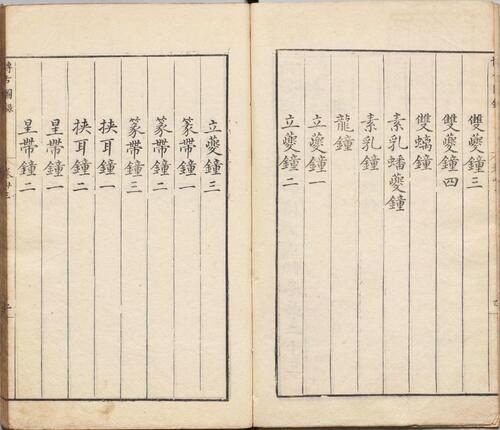 雙夔鐘三
雙夔鐘四
雙螭鐘
素乳蟠夔鐘
素乳鐘
龍鐘
立夔鐘一
立夔鐘二
立夔鐘三
篆帶鐘一
篆帶鐘二
篆帶鐘三
挾耳鐘一
挾耳鐘二
星帶鐘一
星帶鐘二
博古圖錄